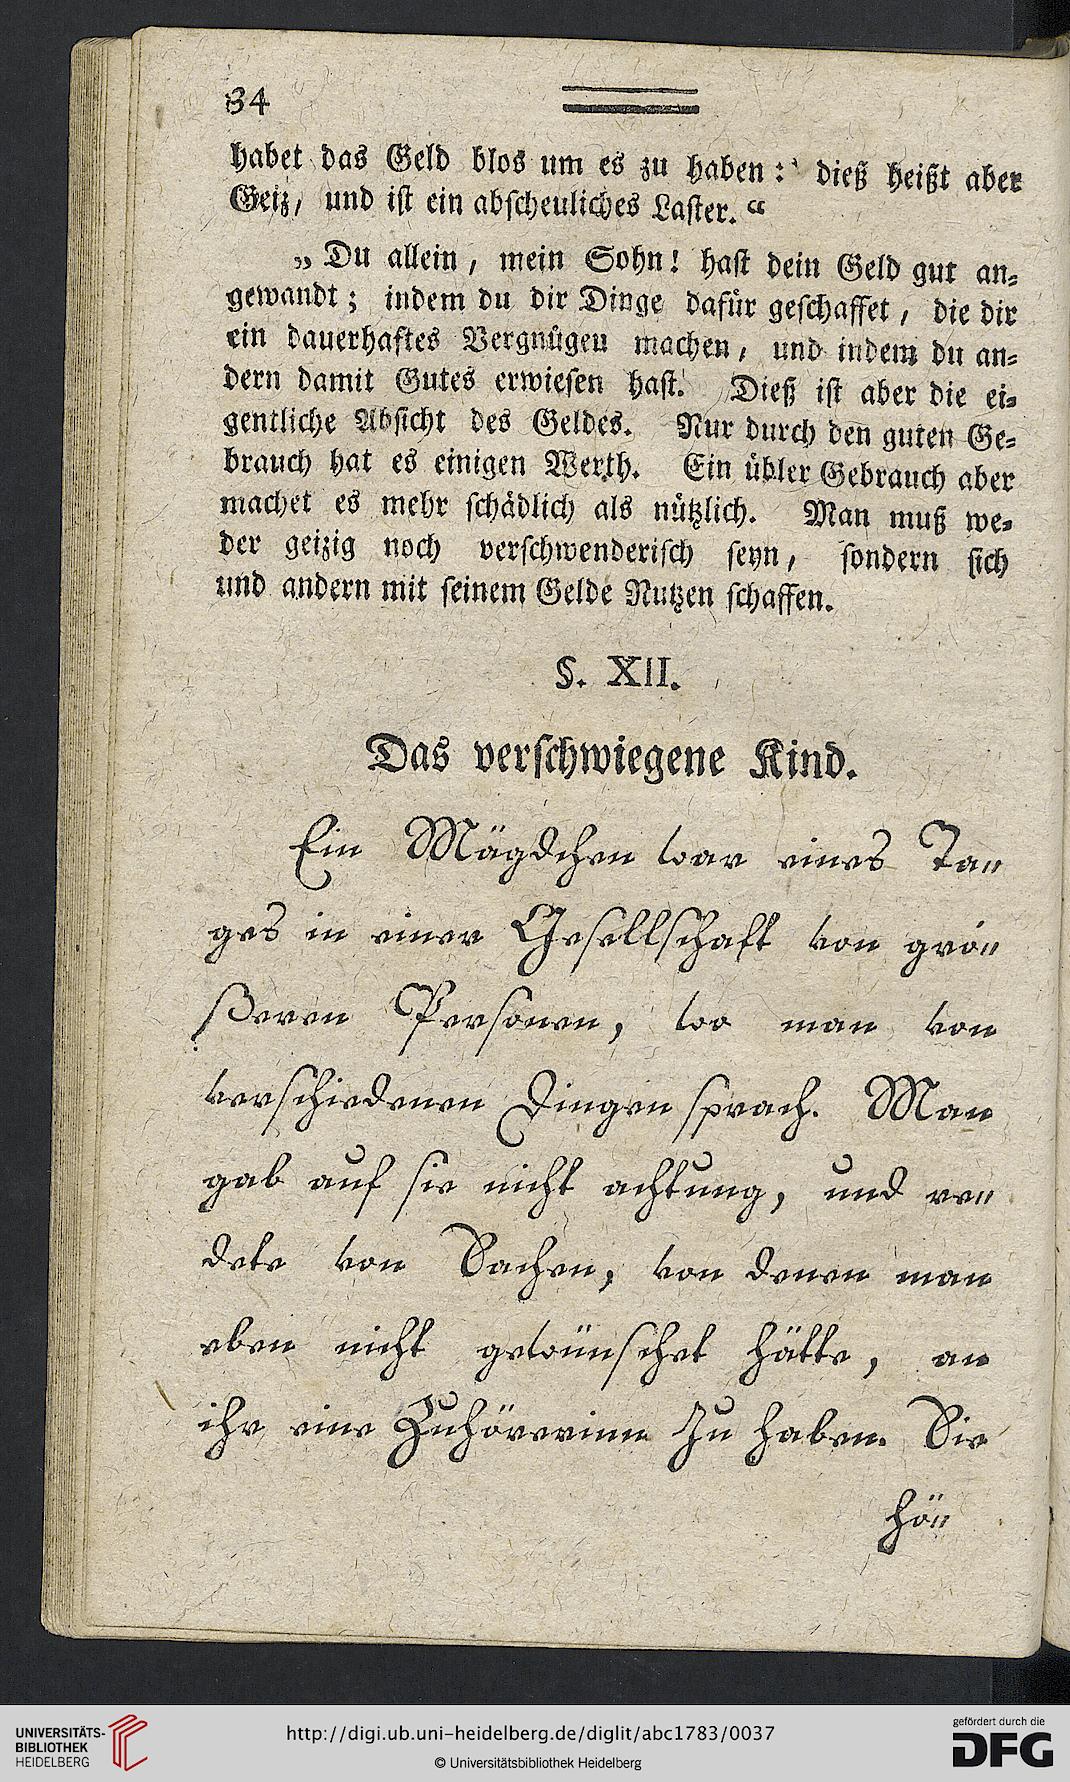 34
habet das Geld blos um es zu haben: dieß heißt aber
Geiz, und ist ein abscheuliches Laster. “
„ Du allein, mein Sohn! hast dein Geld gut an⸗
gewandt; indem du dir Dinge dafür geschaffet, die dir
ein dauerhaftes Vergnügen machen, und indem du an⸗
dern damit Gutes erwiesen hast. Dieß ist aber die ei⸗
gentliche Absicht des Geldes. Nur durch den guten Ge⸗
brauch hat es einigen Werth. Ein übler Gebrauch aber
machet es mehr schädlich als nützlich. Man muß we⸗
der geizig noch verschwenderisch seyn, sondern sich
und andern mit seinem Gelde Nutzen schaffen.
§. XII.
Das verschwiegene Kind.
Ein Mägdchen war eines Ta⸗
ges in einer Gesellschaft von grö⸗
ßeren Personen, wo man von
verschiedenen Dingen sprach. Man
gab auf sie nicht achtung, und re⸗
dete von Sachen, von denen man
eben nicht gewünschet hätte, an
ihr eine Zuhörerinn zu haben. Sie
hö⸗
UNIVERSITÄTS-
BIBLIOTHEK
HEIDELBERG
http://digi.ub.uni-heidelberg.de/diglit/abc1783/0037
© Universitätsbibliothek Heidelberg
gefördert durch die
DFG